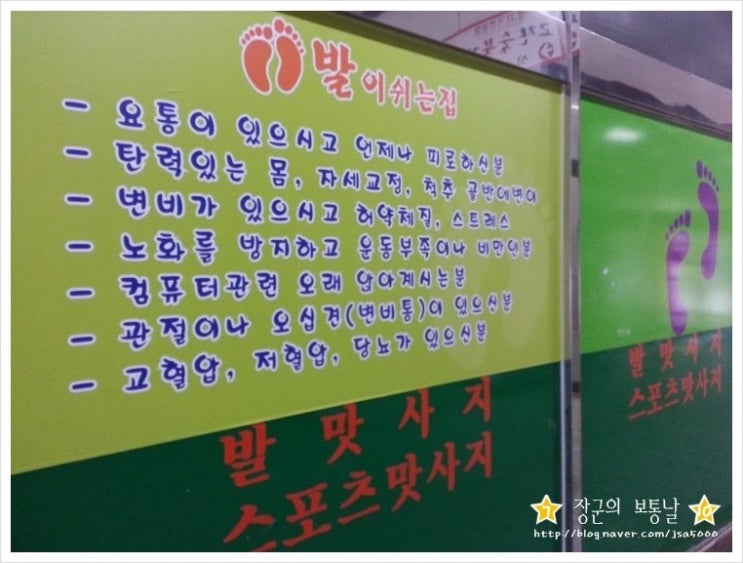 발이쉬는집
- 요통이 있으시고 언제나 피로하신분
- 탄력있는 몸, 자세교정, 척추 골반에변이
- 변비가 있으시고 허약체질, 스트레스
- 노화를 방지하고 운동부족이나 비만인분
- 컴퓨터관련 오래 앉아계시는분
- 관절이나 오십견(변비통)이 있으신분
- 고혈압, 저혈압, 당뇨가 있으신분
발 맛 사 지
스포츠맛사지
발 맛 사 지
스포츠맛사지
7 장군의 보통날 10
http://blog.naver.com/jsa5000